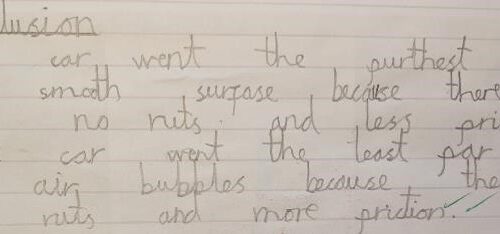 lusion
car went the purthest
smooth surpase because there
no ruts. and less pri
car went the least par
air bubbles because the
ruts and more pridtion.